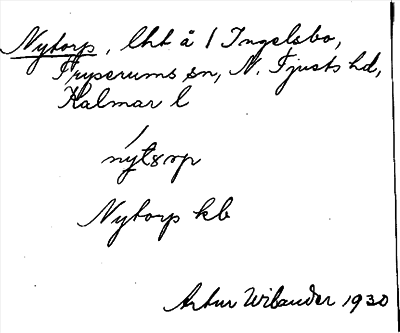 Nytorp, lht å 1 Ingelsbo,
Tryserums sn, N. Tjusts hd,
Kalmar l
nýtorp
Nytorp kb
Artur Wilander 1930